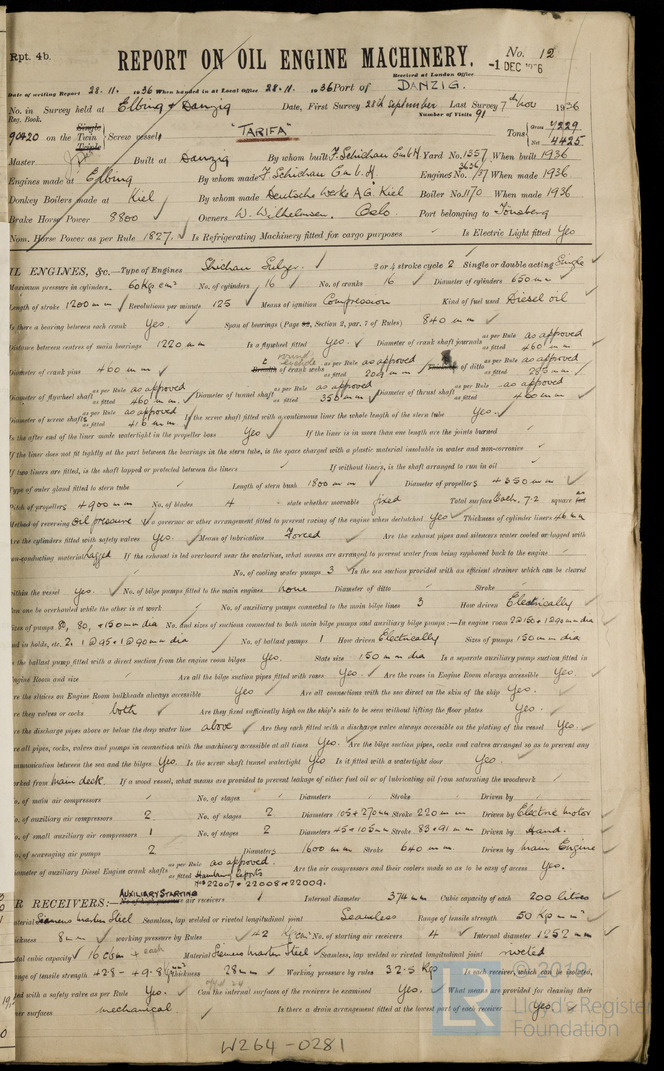 Rpt. 4b.
REPORT ON OIL ENGINE MACHINERY.
No. 12
Received at London Office
-1 DEC 1936
Date of writing Report 28.11. 1936 When handed in at Local Office 28.11. 1936 Port of DANZIG.
No. in Survey held at Elbing & Danzig Date, First Survey 28th September Last Survey 7th Nov 1936
Reg. Book. Number of Visits 91
90420 on the Single Twin Triple Screw vessel "TARIFA" Tons Gross 7229 Net 4425
Master Built at Danzig By whom built F. Schichau G.m.b.H Yard No. 1357 When built 1936
Engines made at Elbing By whom made F. Schichau G.m.b.H Engines No. When made 1936
Donkey Boilers made at Kiel By whom made Deutsche Werke A.G. Kiel Boiler No. 1170 When made 1936
Brake Horse Power 8800 Owners W. Wilhelmsen, Oslo. Port belonging to Tönsberg
Nom. Horse Power as per Rule 1827. Is Refrigerating Machinery fitted for cargo purposes Is Electric Light fitted Yes
IL ENGINES, &c.—Type of Engines Shichau Sulzer. 2 or 4 stroke cycle 2 Single or double acting Single
Maximum pressure in cylinders 60 Kg cm² No. of cylinders 16 No. of cranks 16 Diameter of cylinders 650 mm
Length of stroke 1200 mm Revolutions per minute 125 Means of ignition Compression Kind of fuel used Diesel oil
Is there a bearing between each crank Yes. Span of bearings (Page 92, Section 2, par. 7 of Rules) 840 mm
Distance between centres of main bearings 1220 mm Is a flywheel fitted Yes. Diameter of crank shaft journals as per Rule as approved as fitted 460 mm
Diameter of crank pins 460 mm Breadth of crank webs as per Rule as approved as fitted of ditto as per Rule as approved as fitted 285 mm
Diameter of flywheel shaft as per Rule as approved as fitted 460 mm Diameter of tunnel shaft as per Rule as approved as fitted 356 mm Diameter of thrust shaft as per Rule as approved as fitted 460 mm
Diameter of screw shafts as per Rule as approved as fitted 410 mm Is the screw shaft fitted with a continuous liner the whole length of the stern tube Yes.
Is the after end of the liner made watertight in the propeller boss Yes If the liner is in more than one length are the joints burned
If the liner does not fit tightly at the part between the bearings in the stern tube, is the space charged with a plastic material insoluble in water and non-corrosive
If two liners are fitted, is the shaft lapped or protected between the liners If without liners, is the shaft arranged to run in oil
Type of outer gland fitted to stern tube Length of stern bush 1800 mm Diameter of propellers 4350 mm
Pitch of propellers 4900 mm No. of blades 4 state whether moveable fixed Total surface Each. 7.2 square
Method of reversing Oil pressure Is a governor or other arrangement fitted to prevent racing of the engine when declutched Yes Thickness of cylinder liners 46 mm
Are the cylinders fitted with safety valves Yes. Means of lubrication Forced Are the exhaust pipes and silencers water cooled or lagged with
non-conducting material lagged If the exhaust is led overboard near the waterline, what means are arranged to prevent water from being syphoned back to the engine
No. of cooling water pumps 3 Is the sea suction provided with an efficient strainer which can be cleared
within the vessel Yes. No. of bilge pumps fitted to the main engines none Diameter of ditto Stroke
Can one be overhauled while the other is at work No. of auxiliary pumps connected to the main bilge lines 3 How driven Electrically
Sizes of pumps 80, 80, +150 mm dia No. and sizes of suctions connected to both main bilge pumps and auxiliary bilge pumps:—In engine room 2@150+1@90mm dia
and in holds, etc. 2. 1@95+1@90mm dia No. of ballast pumps 1 How driven Electrically Sizes of pumps 150 mm dia
Is the ballast pump fitted with a direct suction from the engine room bilges Yes. State size 150 mm dia Is a separate auxiliary pump suction fitted in
Engine Room and size Are all the bilge suction pipes fitted with roses Yes. Are the roses in Engine Room always accessible Yes.
Are the sluices on Engine Room bulkheads always accessible Yes Are all connections with the sea direct on the skin of the ship Yes.
Are they valves or cocks both Are they fixed sufficiently high on the ship's side to be seen without lifting the floor plates Yes.
Are the discharge pipes above or below the deep water line above Are they each fitted with a discharge valve always accessible on the plating of the vessel Yes.
Are all pipes, cocks, valves and pumps in connection with the machinery accessible at all times Yes. Are the bilge suction pipes, cocks and valves arranged so as to prevent any
communication between the sea and the bilges Yes. Is the screw shaft tunnel watertight Yes Is it fitted with a watertight door Yes.
worked from main deck. If a wood vessel, what means are provided to prevent leakage of either fuel oil or of lubricating oil from saturating the woodwork
No. of main air compressors No. of stages Diameters Stroke Driven by
No. of auxiliary air compressors 2 No. of stages 2 Diameters 105+270mm Stroke 220 mm Driven by Electric motor
No. of small auxiliary air compressors 1 No. of stages 2 Diameters 45+105mm Stroke 83+91 mm Driven by Hand.
No. of scavenging air pumps 2 Diameters 1600 mm Stroke 640 mm Driven by Main Engine
Diameter of auxiliary Diesel Engine crank shafts as per Rule as approved. as fitted Hamburg Reports Are the air compressors and their coolers made so as to be easy of access Yes.
Nos 22007+22008+22009.
R RECEIVERS:— AUXILIARY STARTING air receivers 1 Internal diameter 374 mm Cubic capacity of each 200 litres
Material Siemens Martin Steel Seamless, lap welded or riveted longitudinal joint Seamless Range of tensile strength 50 Kg mm²
Thickness 8 mm working pressure by Rules 42 Kg cm² No. of starting air receivers 4 Internal diameter 1252 mm
Total cubic capacity 16 cbm each Material Siemens Martin Steel Seamless, lap welded or riveted longitudinal joint riveted
Range of tensile strength 42.8 - 49.8 thickness 28 mm Working pressure by rules 32.5 Kg Is each receiver, which can be isolated,
fitted with a safety valve as per Rule Yes. Can the internal surfaces of the receivers be examined Yes. What means are provided for cleaning their
inner surfaces mechanical Is there a drain arrangement fitted at the lowest part of each receiver Yes.
W264-0281
LR
© 2019
Lloyd's Register
Foundation